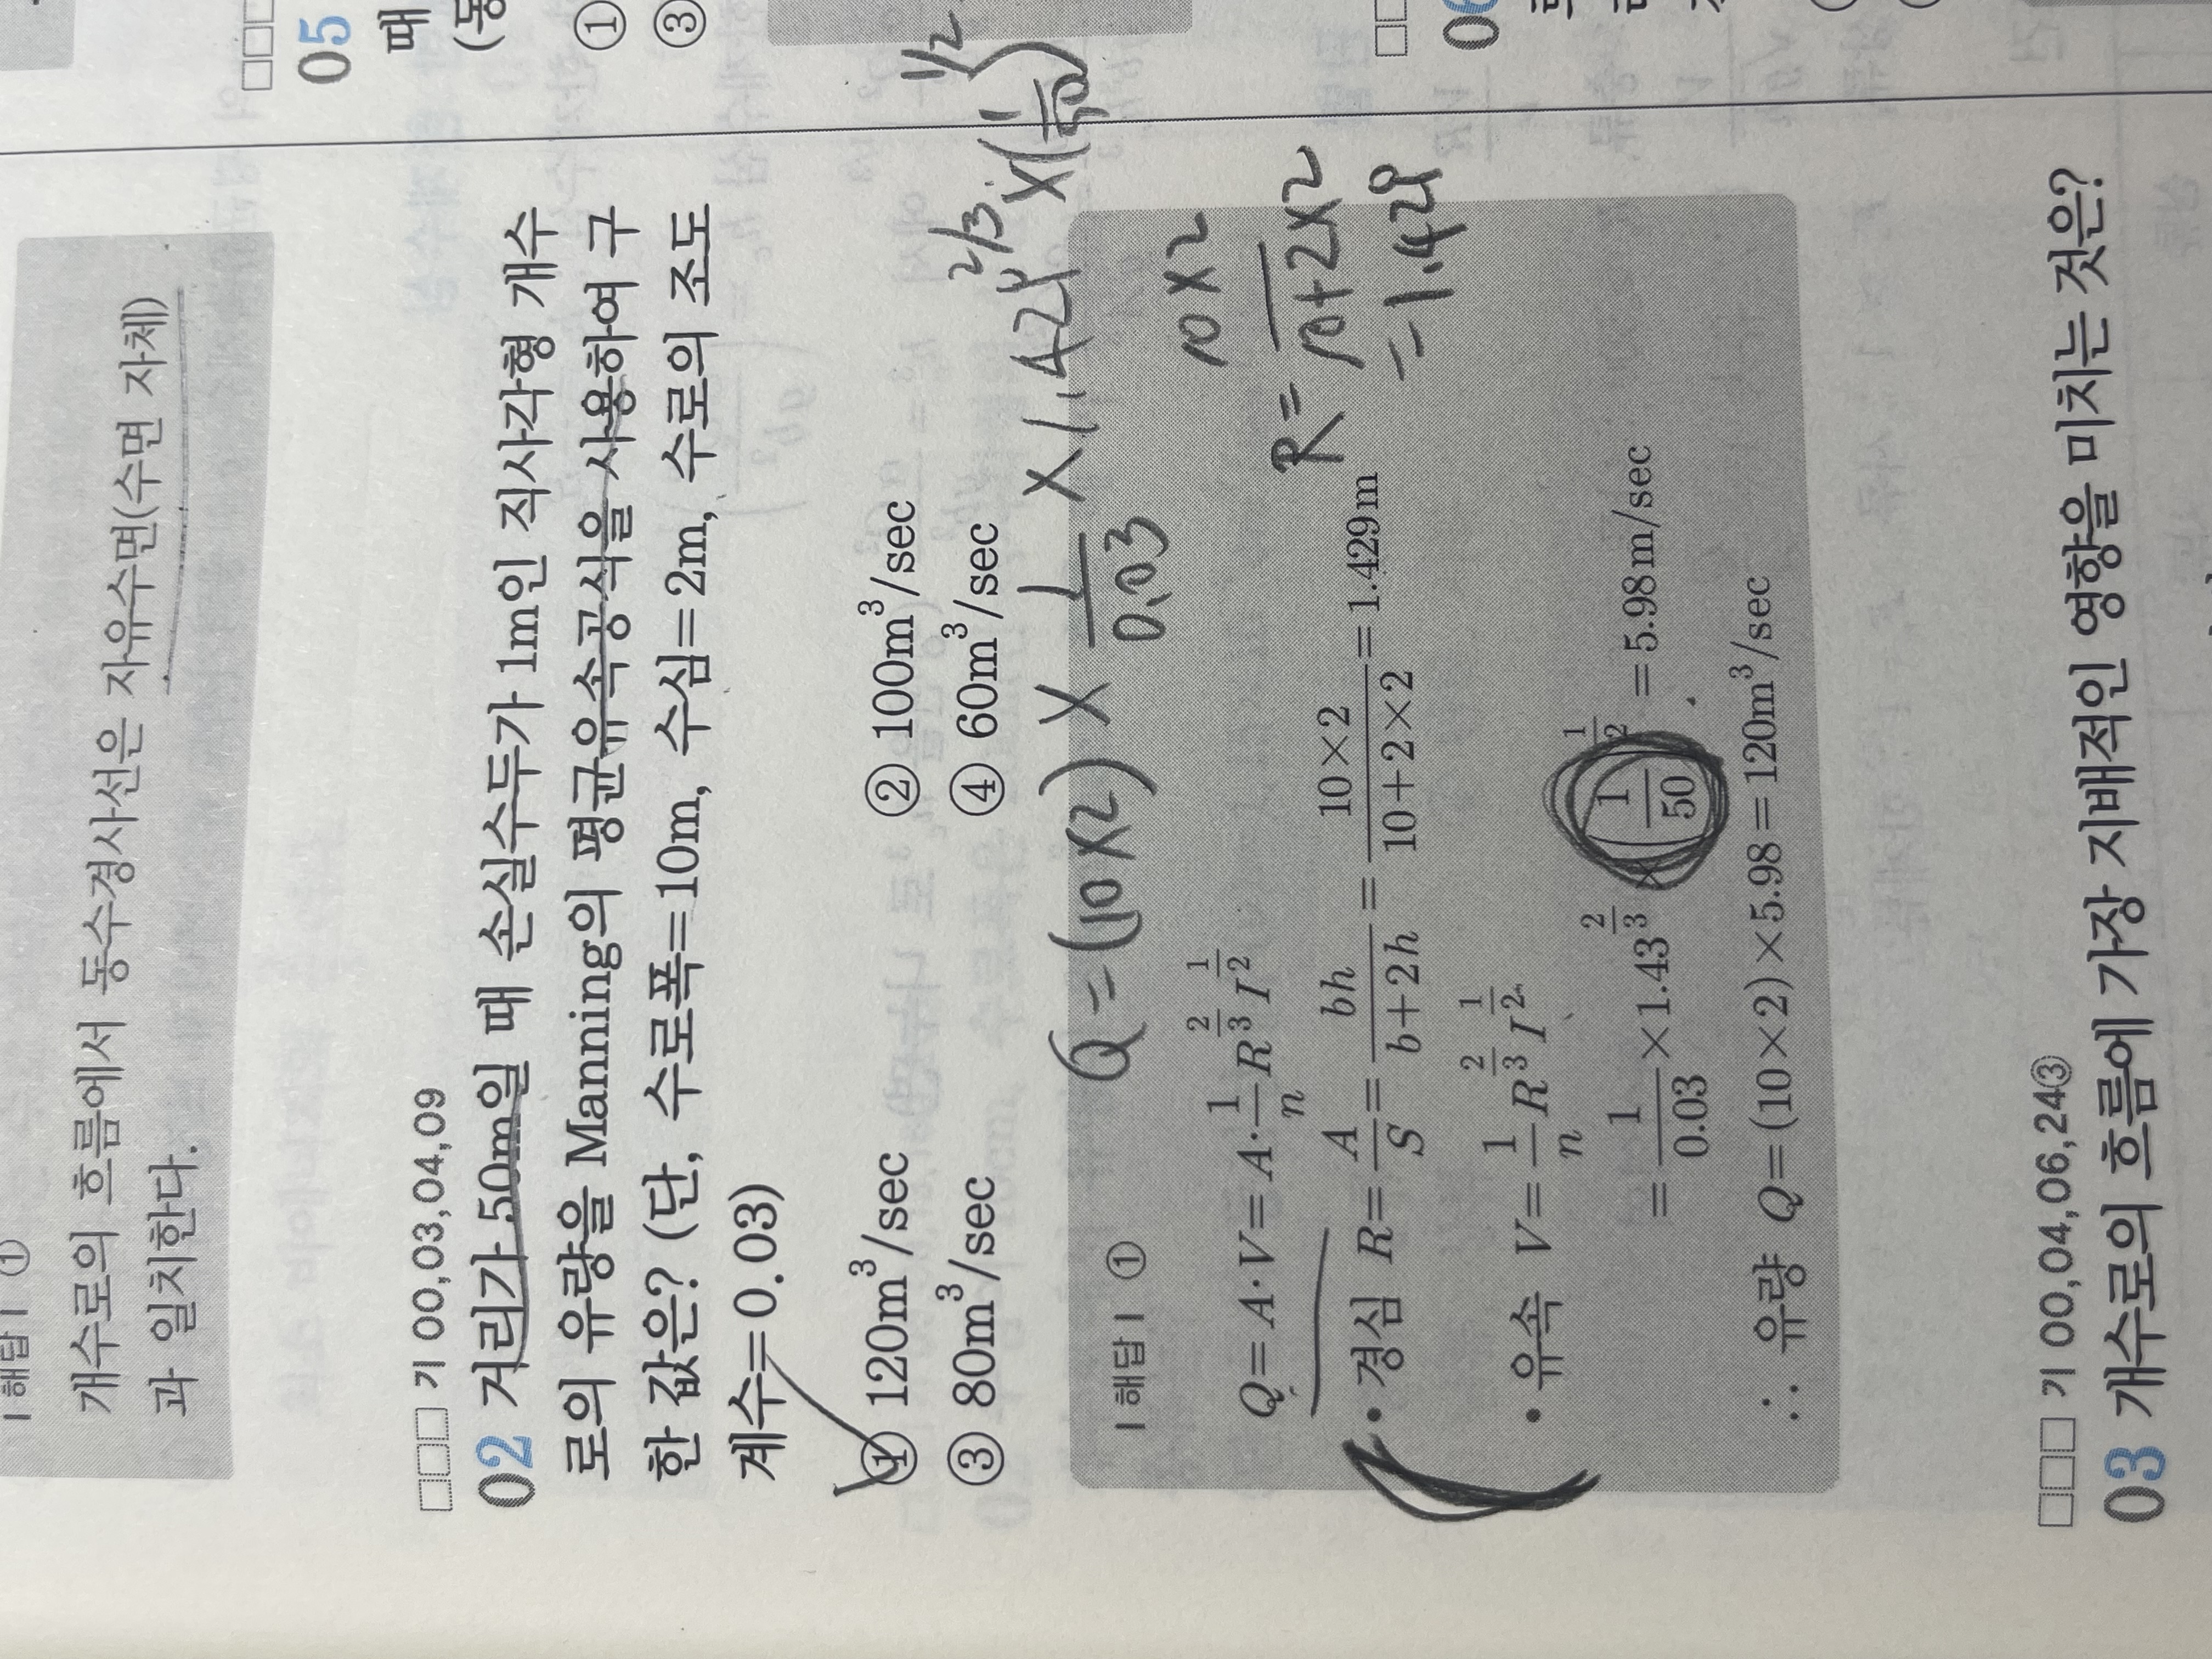 05
때
(동
①
③
06
| 해답 | ①
개수로의 흐름에서 동수경사선은 자유수면(수면 자체)
과 일치한다.
□□□ 기 00,03,04,09
02 거리가 50m일 때 손실수두가 1m인 직사각형 개수
로의 유량을 Manning의 평균유속공식을 사용하여 구
한 값은? (단, 수로폭=10m, 수심=2m, 수로의 조도
계수=0.03)
① 120m³/sec ② 100m³/sec
③ 80m³/sec ④ 60m³/sec
Q = (10×2) × 1/0.03 × 1.429^2/3 × (1/50)^1/2
| 해답 | ①
Q = A·V = A·1/n R^2/3 I^1/2
• 경심 R = A/S = bh/b+2h = 10×2/10+2×2 = 1.429m
R = 10×2/10+2×2
= 1.429
• 유속 V = 1/n R^2/3 I^1/2
= 1/0.03 ×1.43^2/3 × (1/50)^1/2 = 5.98m/sec
∴ 유량 Q = (10×2)×5.98 = 120m³/sec
□□□ 기 00,04,06,24③
03 개수로의 흐름에 가장 지배적인 영향을 미치는 것은?